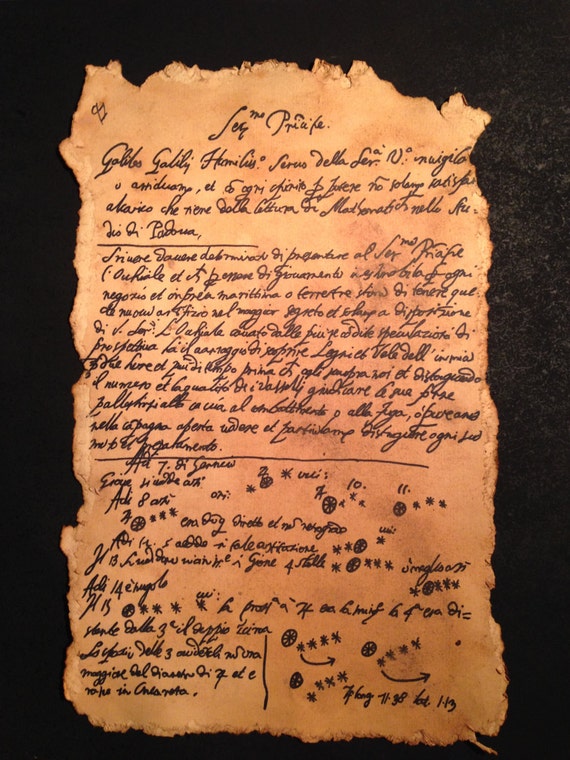 Ser.mo Prīcipe.
Galileo Galilej Humiliss.o Seruo della Ser.a V.a inuigila
et ogni spirito potere nō solamente satisfar
alcarico che tiene della Lettura di Mathematich nello Stu
dio di Padoua,
Scriuere dauere determinato di presentare al Ser.mo Prīcipe
l'Ochiale et essere di giouamento inestimabile ogni
negozio et impresa marittima o terrestre stimo di tenere que
nuouo artifizio nel maggior segreto et solamente a disposizione
di V. Ser. L'Ochiale cauato dalle più recōdite speculazioni di
prospettiua ha il uantaggio di scoprire Legni et Vele dell' inimico
due hore et più di tempo prima ch' egli scuopra noi et distinguendo
il numero et la qualità de i Vasselli giudicare le sue forze
pallestirsi alla caccia al combattimento o alla fuga, o pure anco
nella cāpagna aperta uedere et particolarmente distinguere ogni suo
moto et preparamento.
Adi 7. di Gennaio
Gioue si uede così
Adi 8 così 10. 11.
era dūq diretto et nō retrogrado
Adi 12. si uedde in tale costituzione
Il 13 si ueddono uicinissime à Gioue 4 stelle ò meglio così
Adi 14 è nugolo
Il 15 la pross.a à era la min.e la 4.a era di=
stante dalla 3.a il doppio circa
Lo spazio delle 3 occidētali nō era
maggiore del diametro di et e
rano in linea retta.
long. 71.38 lat. 1.13